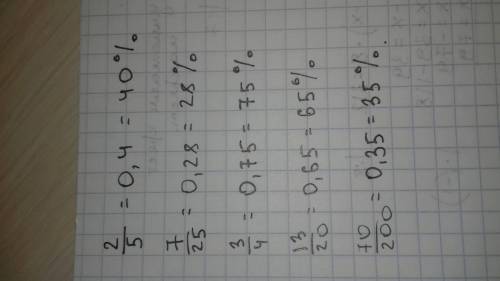 2/5 = 0,4 = 40%
7/25 = 0,28 = 28%
3/4 = 0,75 = 75%
13/20 = 0,65 = 65%
70/200 = 0,35 = 35%.